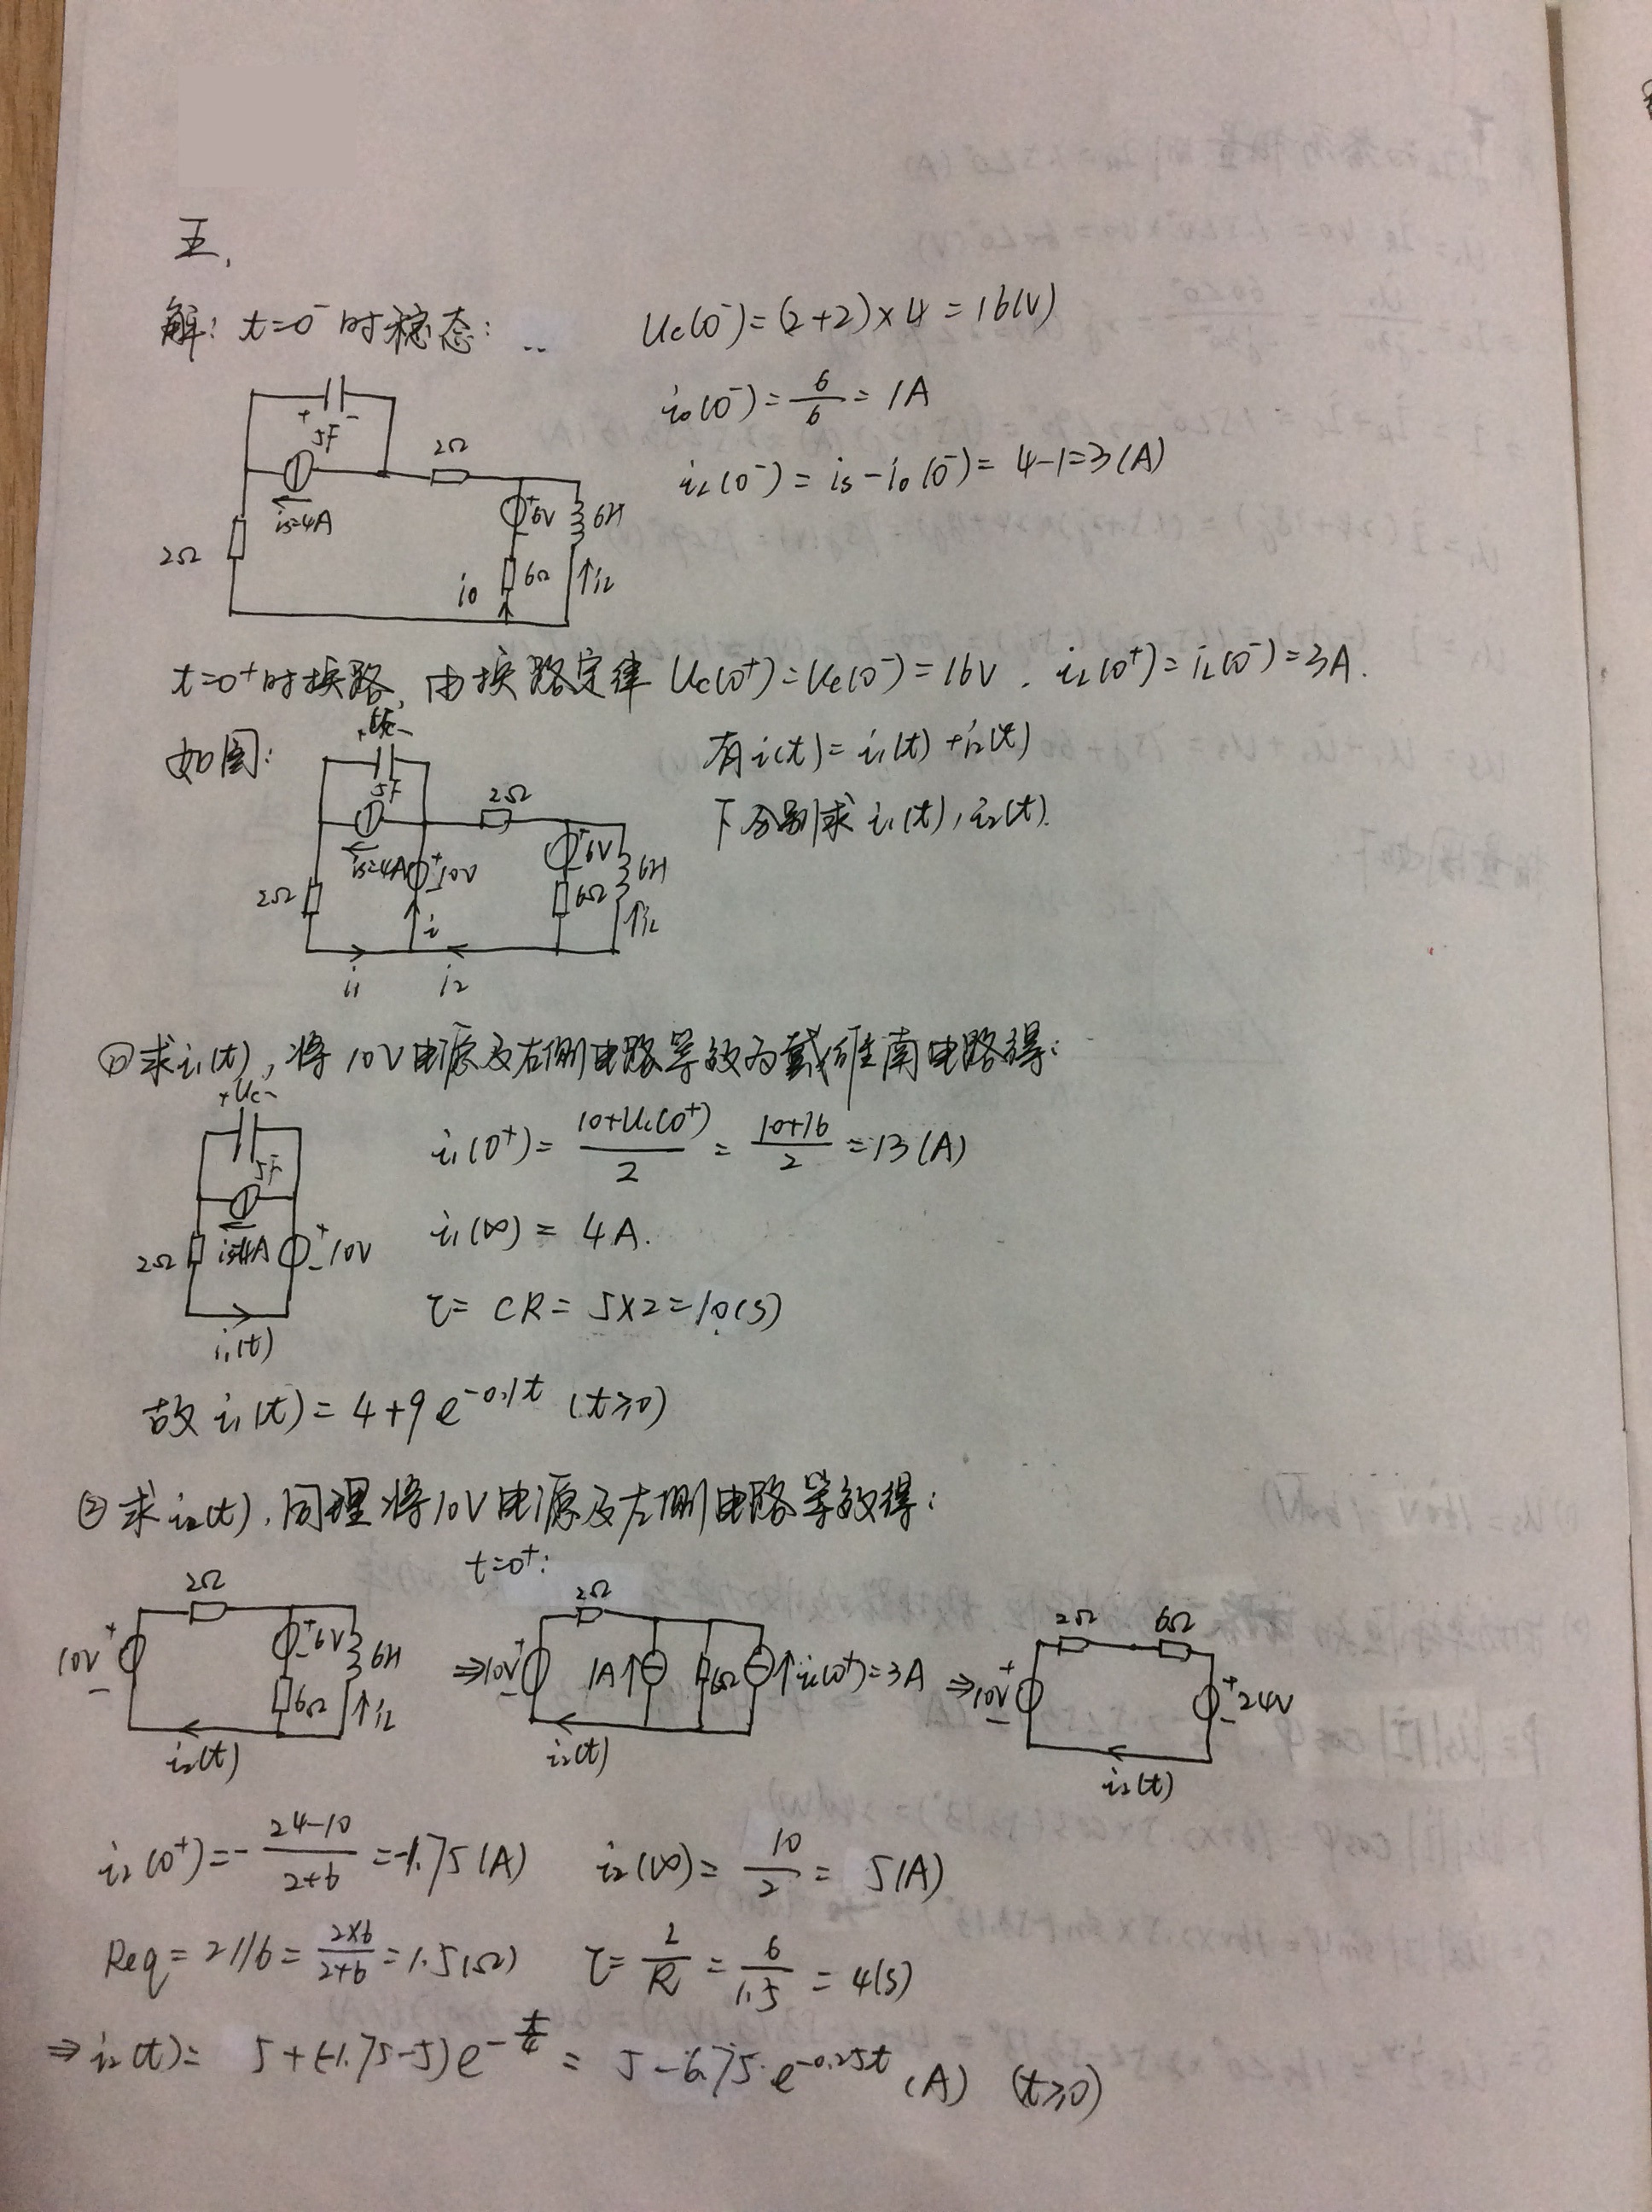 五、
解: t=0⁻时稳态: ..
Uc(0⁻)=(2+2)×4=16(V)
i₀(0⁻)=6/6=1A
iL(0⁻)=is-i₀(0⁻)=4-1=3(A)
+ -
5F
2Ω
is=4A
2Ω
+6V
-
6H
6Ω
i₀
↑iL
t=0⁺时换路, 由换路定律 Uc(0⁺)=Uc(0⁻)=16V. iL(0⁺)=iL(0⁻)=3A.
如图:
有i(t)=i₁(t)+i₂(t)
下分别求i₁(t),i₂(t).
+Uc-
5F
2Ω
is=4A
+10V
-
+6V
-
6H
2Ω
6Ω
↑iL
i
i₁
i₂
①求i₁(t), 将10V电源及右侧电路等效为戴维南电路得:
+Uc-
5F
is=4A
2Ω
+10V
-
i₁(t)
i₁(0⁺)=(10+Uc(0⁺))/2=(10+16)/2=13(A)
i₁(∞)=4A.
τ=CR=5×2=10(s)
故i₁(t)=4+9e^(-0.1t) (t≥0)
②求i₂(t), 同理将10V电源及左侧电路等效得:
t=0⁺:
2Ω
10V
+
-
+6V
-
6H
6Ω
↑iL
i₂(t)
⇒10V
+
-
2Ω
1A↑
6Ω
↑iL(0⁺)=3A
i₂(t)
⇒10V
+
-
2Ω
6Ω
+24V
-
i₂(t)
i₂(0⁺)=-(24-10)/(2+6)=-1.75(A) i₂(∞)=10/2=5(A)
Req=2//6=(2×6)/(2+6)=1.5(Ω) τ=L/R=6/1.5=4(s)
⇒i₂(t)=5+(-1.75-5)e^(-t/4)=5-6.75·e^(-0.25t)(A) (t≥0)